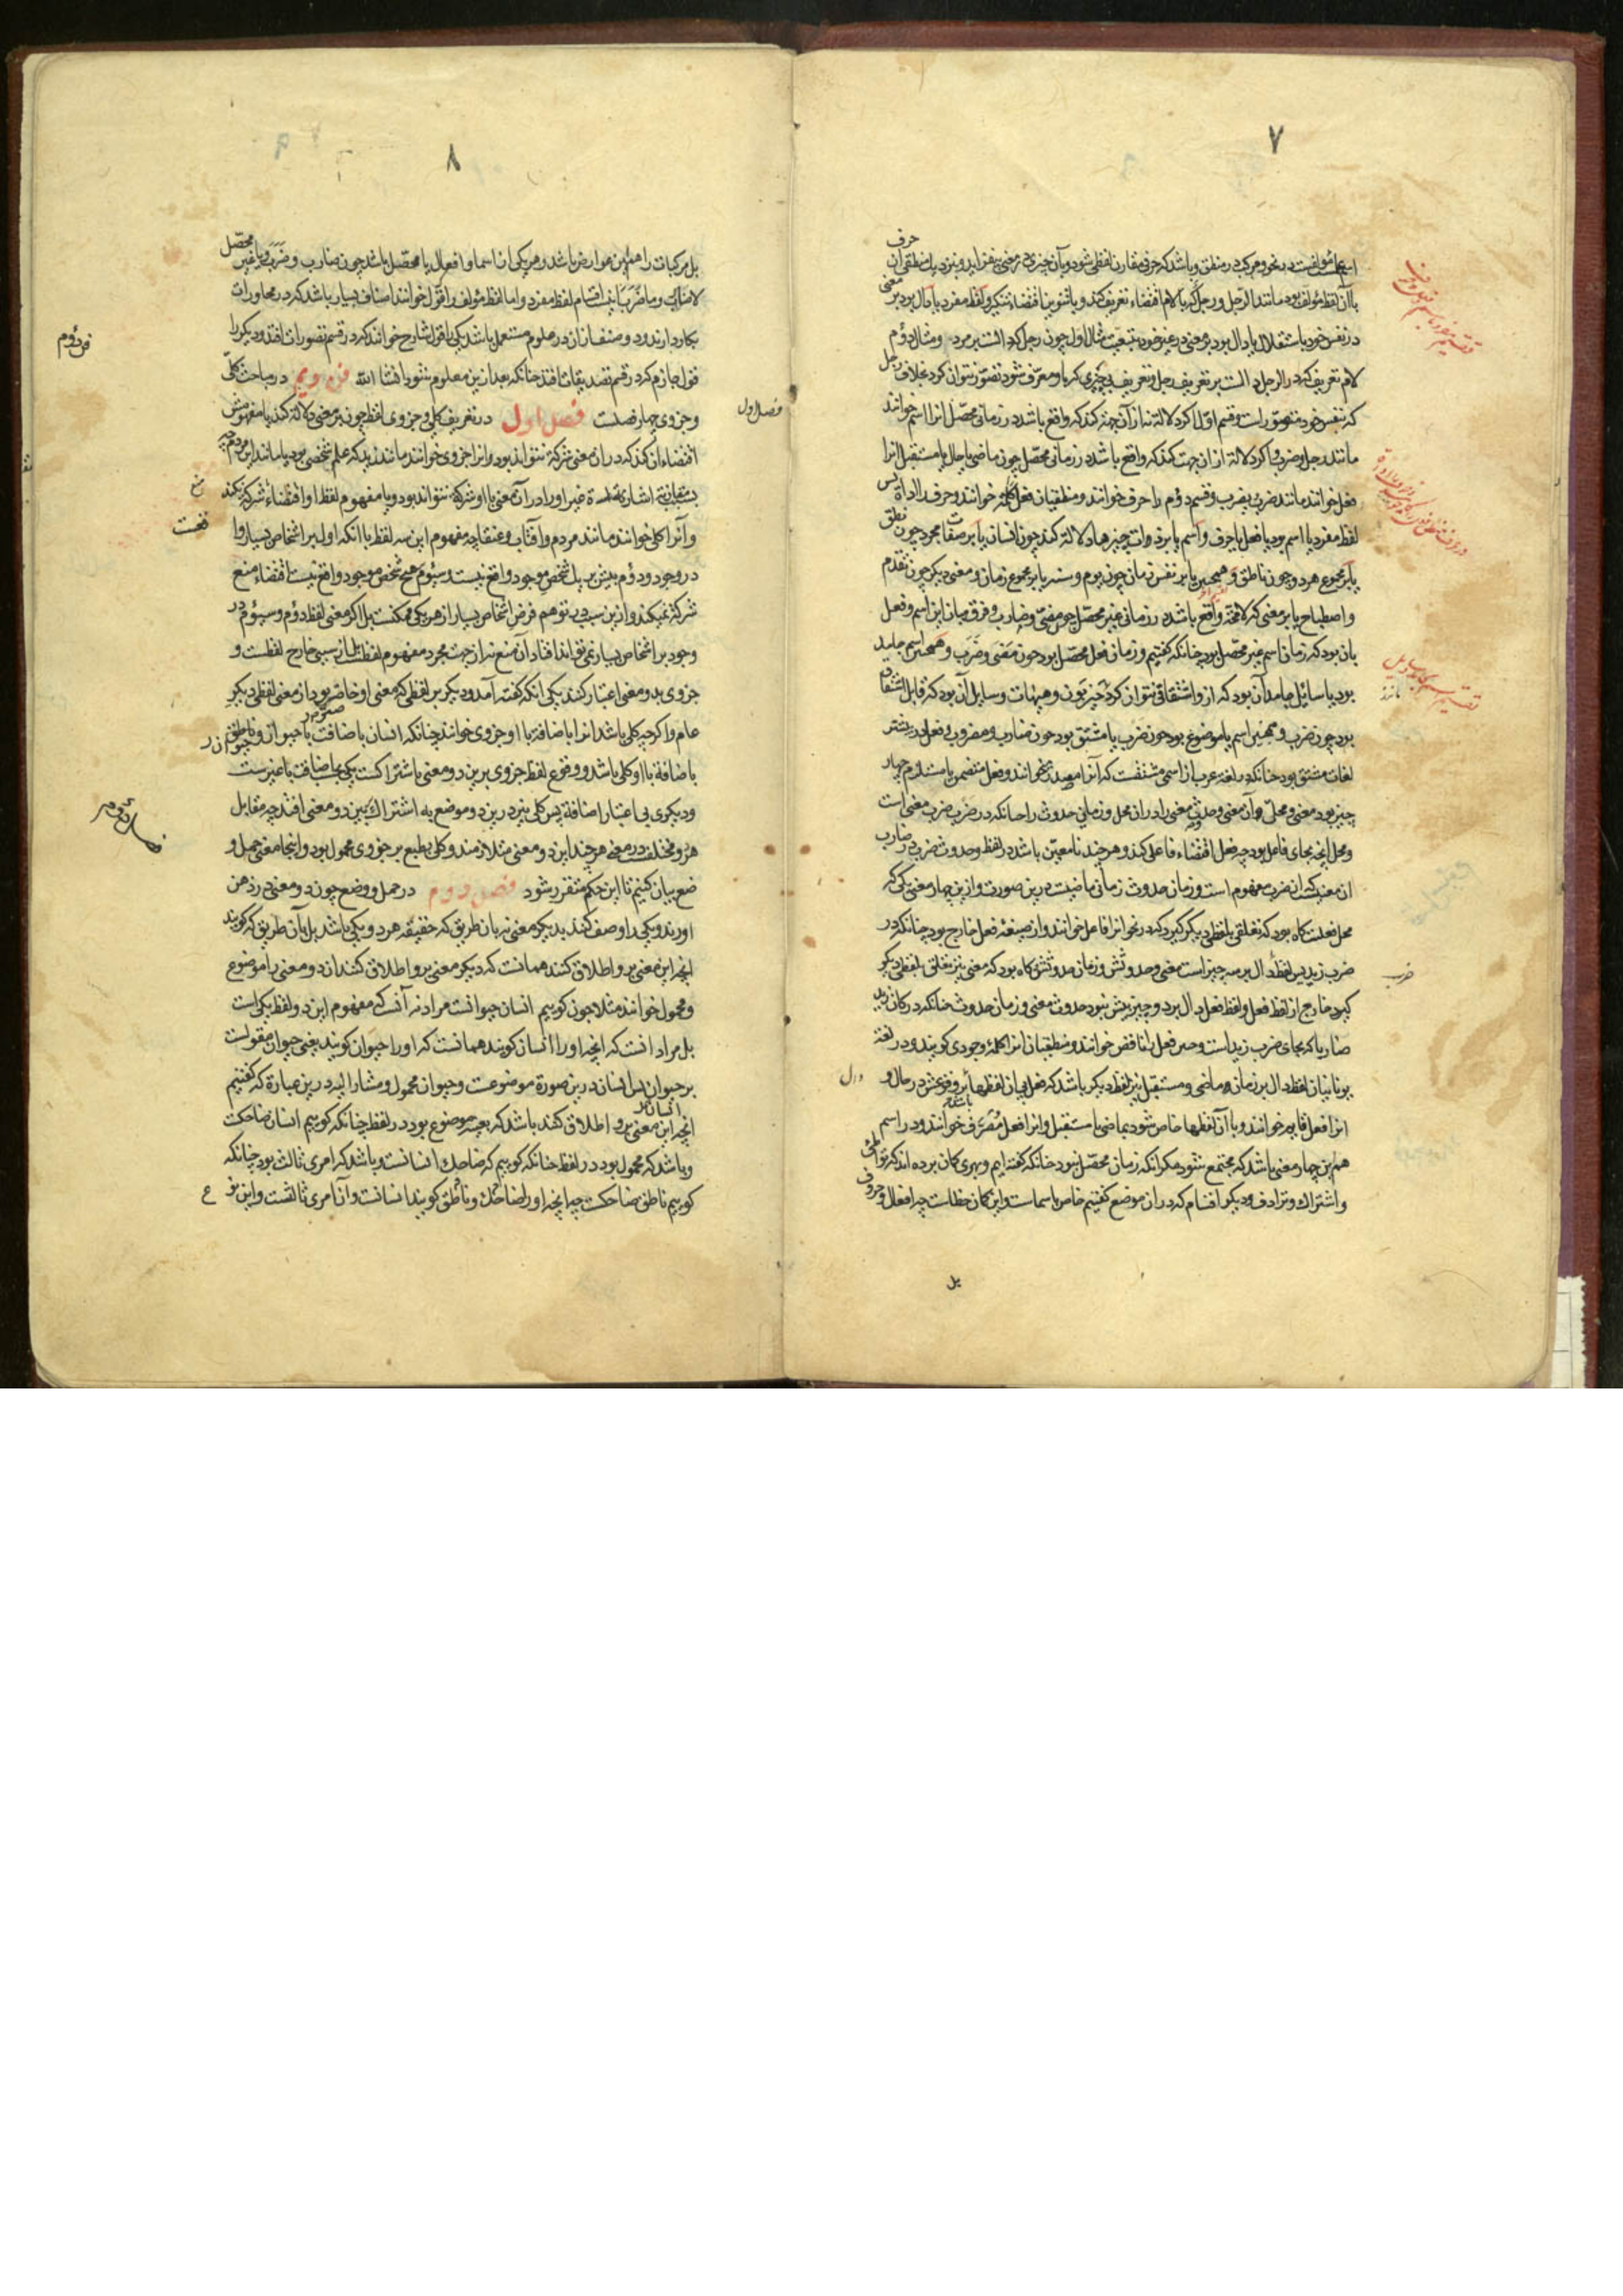 ۷
حرف
باآن لفظ مؤلف بود مانند الرّجل و رجلٌ که بالام اقتضاء تعریف کند و با تنوین اقتضاء تنکیر و لفظ مفرد یا دال بود بر معنی
در نفس خود باستقلال یا دال بود بر معنی در غیر خود بتبعیّت مثال اول چون رجل که دالست بر مرد و مثال دوّم
لام تعریف که در الرجل دالست بر تعریف رجل و تعریف بی چیزی که باو معرّف شود تصوّر نتوان کرد بخلاف رجل
که بنفس خود متصوّر است و قسم اوّل اگر دلالة نه از آن جهة کند که واقع باشد در زمانی محصّل انرا اسم خوانند
مانند رجل و ضرب و اگر دلالة از ان جهت کند که واقع باشد در زمانی محصّل چون ماضی یا حال یا مستقبل انرا
فعل خوانند مانند ضرب یضرب و قسم دوّم را حرف خوانند و منطقیان فعل را کلمه خوانند و حرف را اداة پس
لفظ مفرد یا اسم بود یا فعل یا حرف و اسم یا بر ذوات چیزها دلالة کند چون انسان یا بر صفات مجرد چون نطق
یا بر مجموع هر دو چون ناطق و همچنین یا بر نفس زمان چون یوم و سنه یا بر مجموع زمان و معنی دیگر چون تقدّم
و اصطباح یا بر معنی که لامحة واقع باشد در زمانی غیر محصّل چون مضیّ و ضارب و فرق میان این اسم و فعل
بان بود که زمان اسم غیر محصّل بود چنانکه گفتیم و زمان فعل محصّل بود چون مَضی و ضَرب و همچنین اسم جامد
بود یا سائل جامد آن بود که از و اشتقاق نتوان کرد و سایل آن بود که قابل اشتقاق
بود چون ضرب و همچنین اسم یا موضوع بود چون ضرب یا مشتق بود چون ضارب و مضروب و فعل در بیشتر
لغات مشتق بود چنانکه در لغة عرب از اسمی مشتقست که آنرا مصدر خوانند و فعل متضمن یا مستلزم چهار
چیز بود معنی و محلّ آن معنی و حدوث معنی را در ان محل و زمان حدوث را چنانکه در ضَرب ضرب معنی است
و محل انچه بجای فاعل بود چه فعل اقتضاء فاعلی کند و هر چند نامعیّن باشد در لفظ و حدوث ضرب در ضارب
ان معنیست که از ضرب مفهوم است و زمان حدوث زمانی ماضیست درین صورت و ازین چهار معنی یکی که
محل فعلست گاه بود که تعلقی بلفظی دیگر گیرد که در نحو انرا فاعل خوانند و از صیغهٔ فعل خارج بود چنانکه در
ضرب زید پس لفظ دال بر سه چیز است معنی و حدوثش و زمان حدوثش و گاه بود که معنی نیز تعلق بلفظی دیگر
گیرد خارج از لفظ فعل و لفظ فعل دال بر دو چیز بیش نبود حدوث معنی و زمان حدوث چنانکه در کان زید
ضارباً که بجای ضرب زید است و چنین فعل را ناقص خوانند و منطقیان انرا کلمهٔ وجودی گویند و در لغة
یونانیان لفظ دال بر زمان ماضی و مستقبل نیز لفظ دیگر باشد که فعل بی ان لفظها بر وقوعش در حال و
انرا فعل قایم خوانند و با آن لفظها خاص شود بماضی یا مستقبل و انرا فعل مصرّف خوانند و در اسم
هم این چهار معنی باشد که مجتمع شود مگر انکه زمان محصّل نبود چنانکه گفته ایم و بهری گمان برده اند که تواطئ
و اشتراک و ترادف و دیگر اقسام که در ان موضع گفتیم خاص باسماست و این گمان خطاست چه افعال و حروف
بل
ضرب
۸
بل مرکبات را همین عوارض باشد و هر یکی از اسما و افعال یا محصّل باشد چون ضارب و ضَرَبَ و یا غیر محصّل
لاضارب و ماضَرَبَ اینست اقسام لفظ مفرد و اما لفظ مؤلف و انرا قول خوانند اصناف بسیار باشد که در محاورات
بکار دارند و دو صنف از ان در علوم مستعمل باشد یکی را قول شارح خوانند که در قسم تصورات افتد و دیگر را
قول جازم که در قسم تصدیقات افتد چنانکه بعد ازین معلوم شود انشا الله فن دویم در مباحث کلّی
و جزوی چهار فصلست فصل اول در تعریف کلی و جزوی لفظ چون بر معنی دلالة کند یا مفهومش
اقتضاء ان کند که در ان معنی شرکة نتواند بود و انرا جزوی خوانند مانند زید که علم شخصی بود یا مانند این مردم چه
و آنرا کلی خوانند مانند مردم و آفتاب و عنقا چه مفهوم این سه لفظ با انکه اول بر اشخاص بسیار را
در وجود و دوّم بیش بر یک شخص موجود واقع نیست و سیّوم بر هیچ شخص موجود واقع نیست اقتضاء منع
شرکة نمیکند و ازین سبب در توهم فرض اشخاص بسیار از هر یکی ممکنست بل اگر معنی لفظ دوّم و سیّوم در
وجود بر اشخاص بسیار نمی تواند افتاد آن منع نه از جهت مجرد مفهوم لفظست بل از سببی خارج لفظست و
جزوی بدو معنی اعتبار کنند یکی انکه گفته آمد و دیگر هر لفظی که معنی او خاصتر بود از معنی لفظی دیگر
عام و اگرچه کلی باشد انرا باضافة با او جزوی خوانند چنانکه انسان باضافت با حیوان و ناطق
باضافة با او کلی باشد و وقوع لفظ جزوی برین دو معنی باشتراکست یکی باضافت با غیرست
و دیگری بی اعتبار اضافة پس کلی نیز درین دو موضع به اشتراک برین دو معنی افتد چه مقابل
هر دو مختلف در معنی هر چند این دو معنی متلازمند و کلی بطبع بر جزوی محمول بود و اینجا معنی حمل و
ضع بیان کنیم تا این حکم متقرر شود فصل دوم در حمل و وضع چون دو معنی در ذهن
اورند و یکی را وصف کنند بدیگر معنی نه بان طریق که حقیقة هر دو یکی باشد بل بآن طریق که گویند
انچه این معنی برو اطلاق کنند همانست که دیگر معنی برو اطلاق کنند ان دو معنی را موضوع
و محمول خوانند مثلا چون گوییم انسان حیوانست مراد نه آنست که مفهوم این دو لفظ یکی است
بل مراد انست که انچه اورا انسان گویند همانست که اورا حیوان گویند یعنی حیوان مقولست
بر حیوان پس انسان درین صورة موضوعست و حیوان محمول و مشار الیه درین عبارة که گفتیم
انچه این معنی برو اطلاق کنند باشد که بعینه موضوع بود در لفظ چنانکه گوییم انسان ضاحکست
و باشد که محمول بود در لفظ چنانکه گوییم که ضاحک انسانست و باشد که امری ثالث بود چنانکه
گوییم ناطق ضاحکست چه انچه اورا ضاحک و ناطق گویند انسانست و آن امری ثالثست و این نو
ع
فن دوم
فصل اول
فصل دوم